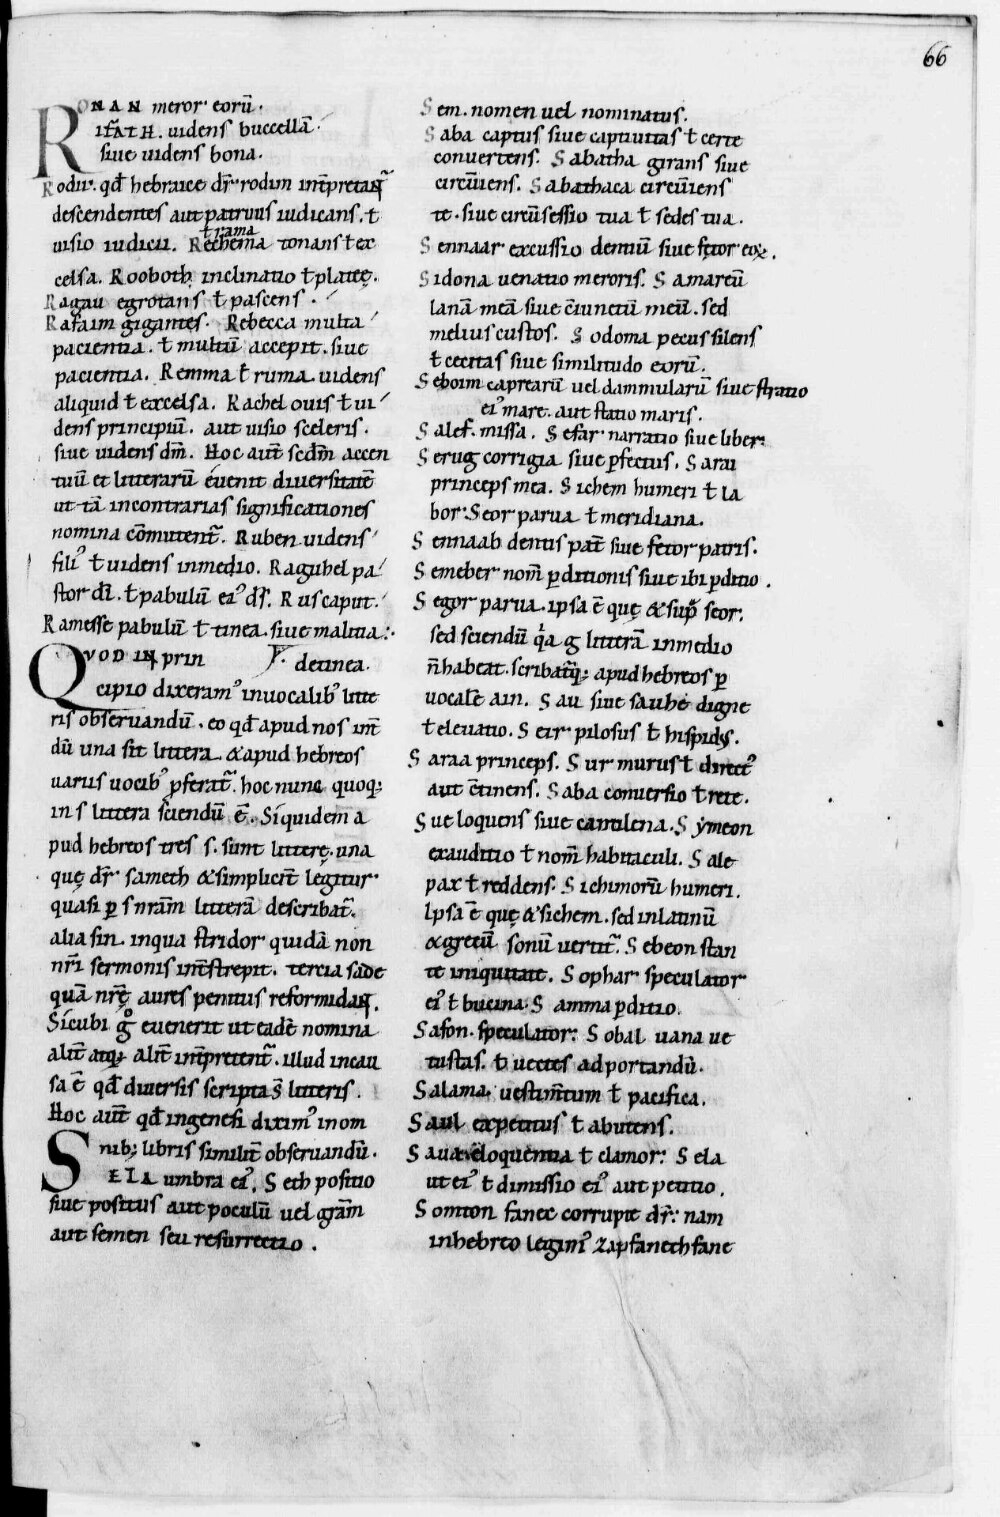 66
RONAN meror eorũ.
IFATH. uidens buccellã.
siue uidens bona.
Rodii. qđ hebraice dr̃ rodim int̃pretant̃
descendentes aut patruus iudicans. ł
ł rama
uisio iudicii. Rechema tonans ł ex
celsa. Rooboth inclinatio ł plateę.
Ragau egrotans ł pascens.
Rafaim gigantes. Rebecca multa
pacientia. ł multũ accepit. siue
pacientia. Remma ł ruma uidens
aliquid ł excelsa. Rachel ouis ł ui
dens principiũ. aut uisio sceleris.
siue uidens dm̃. Hoc aut̃ scdm̃ accen
tuũ et litterarũ euenit diuersitatẽ
ut tã in contrarias significationes
nomina cõmutent̃. Ruben uidens
fili᾿ ł uidens in medio. Raguhel pa
stor dĩ. ł pabulũ ei᾿ ds̃. Rus caput.
Ramesse pabulũ ł tinea. siue malitia
QVOD IN prin
de tinea.
cipio dixeram᾿ in uocalib᾿ litte
ris obseruandũ. eo qđ apud nos int̃
dũ una sit littera. & apud hebreos
uariis uocib᾿ p̱ferat̃. hoc nunc quoq;
in s littera sciendũ ẽ. Siquidem a
pud hebreos tres s. sunt litterę. una
quę dr̃ samech & simplicit̃ legitur
quasi p̱ s nr̃am litterã describat̃.
alia sin. in qua stridor quidã non
nr̃i sermonis int̃strepit. tercia sade
quã nr̃ę aures penitus reformidant.
Sicubi gͦ euenerit ut eadẽ nomina
alit̃ atq; alit̃ int̃pretent̃. illud in cau
sa ẽ qđ diuersis scripta s̃ litteris.
Hoc aut̃ qđ in genesi dixim᾿ in om
nib; libris similit̃ obseruandũ.
SELA umbra ei᾿. Seth positio
siue positus aut poculũ uel gram̃
aut semen seu resurrectio.
Sem. nomen uel nominatus.
Saba captus siue captiuitas ł certe
conuertens. Sabatha girans siue
circũiens. Sabathaca circũiens
te. siue circũsessio tua ł sedes tua.
Sennaar excussio dentiũ siue fętor eoꝝ.
Sidona uenatio meroris. Samareũ
lanã meã siue cĩunctũ meũ. sed
melius custos. Sodoma pecus silens
ł cecitas siue similitudo eorũ.
Seboim caprearũ uel dammularũ siue statio
ei᾿ mare. aut statio maris.
Salef. missa. Sefar narratio siue liber.
Serug corrigia siue p̱fectus. Sarai
princeps mea. Sichem humeri ł la
bor. Seor parua ł meridiana.
Sennaab dentis pat̃ siue fętor patris.
Semeber nom̃ p̱ditionis siue ibi p̱ditio.
Segor parua. ipsa ẽ quę & sup̃ seor.
sed sciendũ qͥa g litterã in medio
ñ habeat. scribatq̃; apud hebreos p̱
uocalẽ ain. Sau siue sauhe digne
ł eleuatio. Seir pilosus ł hispidus.
Saraa princeps. Sur murus ł direct᾿
aut cõtinens. Saba conuersio ł rete.
Sue loquens siue cantilena. Symeon
exauditio ł nom̃ habitaculi. Sale
pax ł reddens. Sichimorũ humeri.
Ipsa ẽ quę & sichem. sed in latinũ
& grecũ sonũ uertit̃. Sebeon stan
te iniquitate. Sophar speculator
ei᾿ ł bucina. Samma p̱ditio.
Safon. speculator. Sobal uana ue
tustas. ł uectes ad portandũ.
Salama. uestim̃tum ł pacifica.
Saul expetitus ł abutens.
Saua. eloquentia ł clamor. Sela
ut ei᾿ ł dimissio ei᾿ aut petitio.
Somton fanec corrupte dr̃. nam
in hebreo legim᾿ zapfanethfane